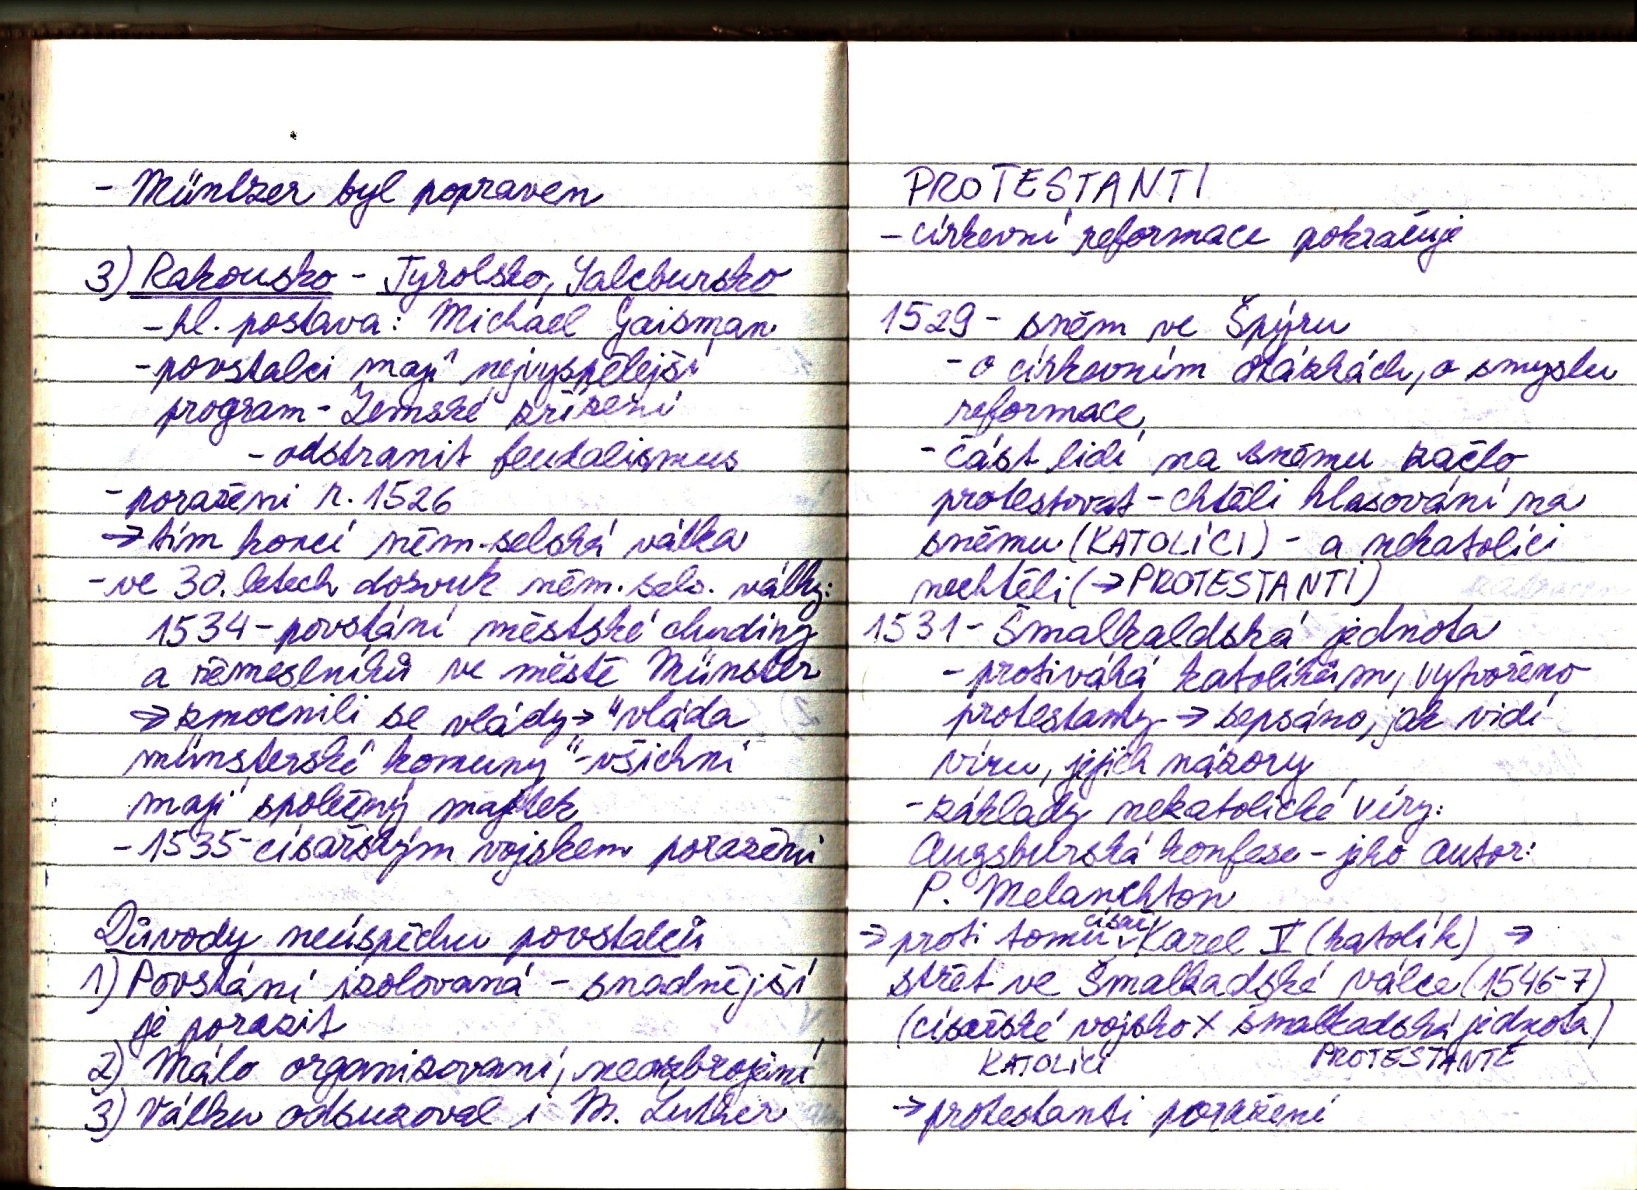 - Müntzer byl popraven
3) Rakousko - Tyrolsko, Salcbursko
- hl. postava: Michael Gaisman
- povstalci mají nejvyspělejší
program - Zemské zřízení
- odstranit feudalismus
- poraženi r. 1526
→ tím koncí něm. selská válka
- ve 30. letech dozvuk něm. sels. války:
1534 - povstání městské chudiny
a řemeslníků ve městě Münster
→ zmocnili se vlády → "vláda
münsterské komuny" - všichni
mají společný majetek
- 1535 - císařským vojskem poraženi
Důvody neúspěchu povstalců
1) Povstání izolovaná - snadnější
je porazit
2) Málo organizovaní, neozbrojení
3) Válku odsuzoval i M. Luther
PROTESTANTI
- církevní reformace pokračuje
1529 - sněm ve Špýru
- o církevním otázkách, o smyslu
reformace
- část lidí na sněmu začlo
protestovat - chtěli hlasování na
sněmu (KATOLÍCI) - a nekatolíci
nechtěli (→ PROTESTANTI)
1531 - Šmalkaldská jednota
- protiváha katolíkům, vytvořeno
protestanty → sepsáno, jak vidí
víru, jejich názory
- základy nekatolické víry:
Augsburská konfese - jeho autor:
P. Melanchton
→ proti tomu císař Karel V (katolík) →
střet ve Šmalkadské válce (1546-7)
(císařské vojsko x šmalkadská jednota)
KATOLÍCI PROTESTANTÉ
→ protestanti poraženi